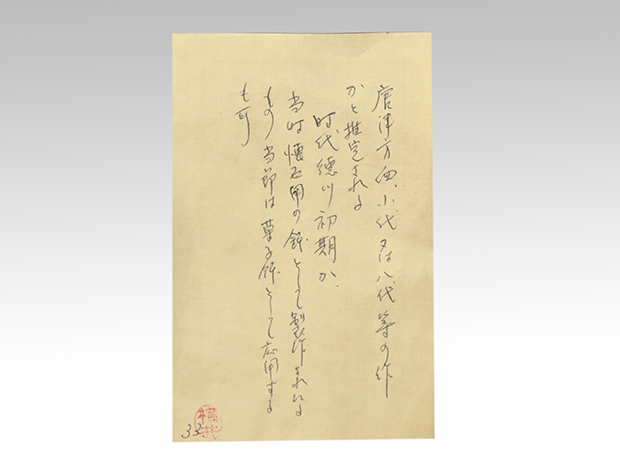 唐津方面、小代又は八代等の作
かと推定される
時代徳川初期か、
当時懐石用の鉢として製作されたる
もの当節は菓子鉢として応用する
も可
33